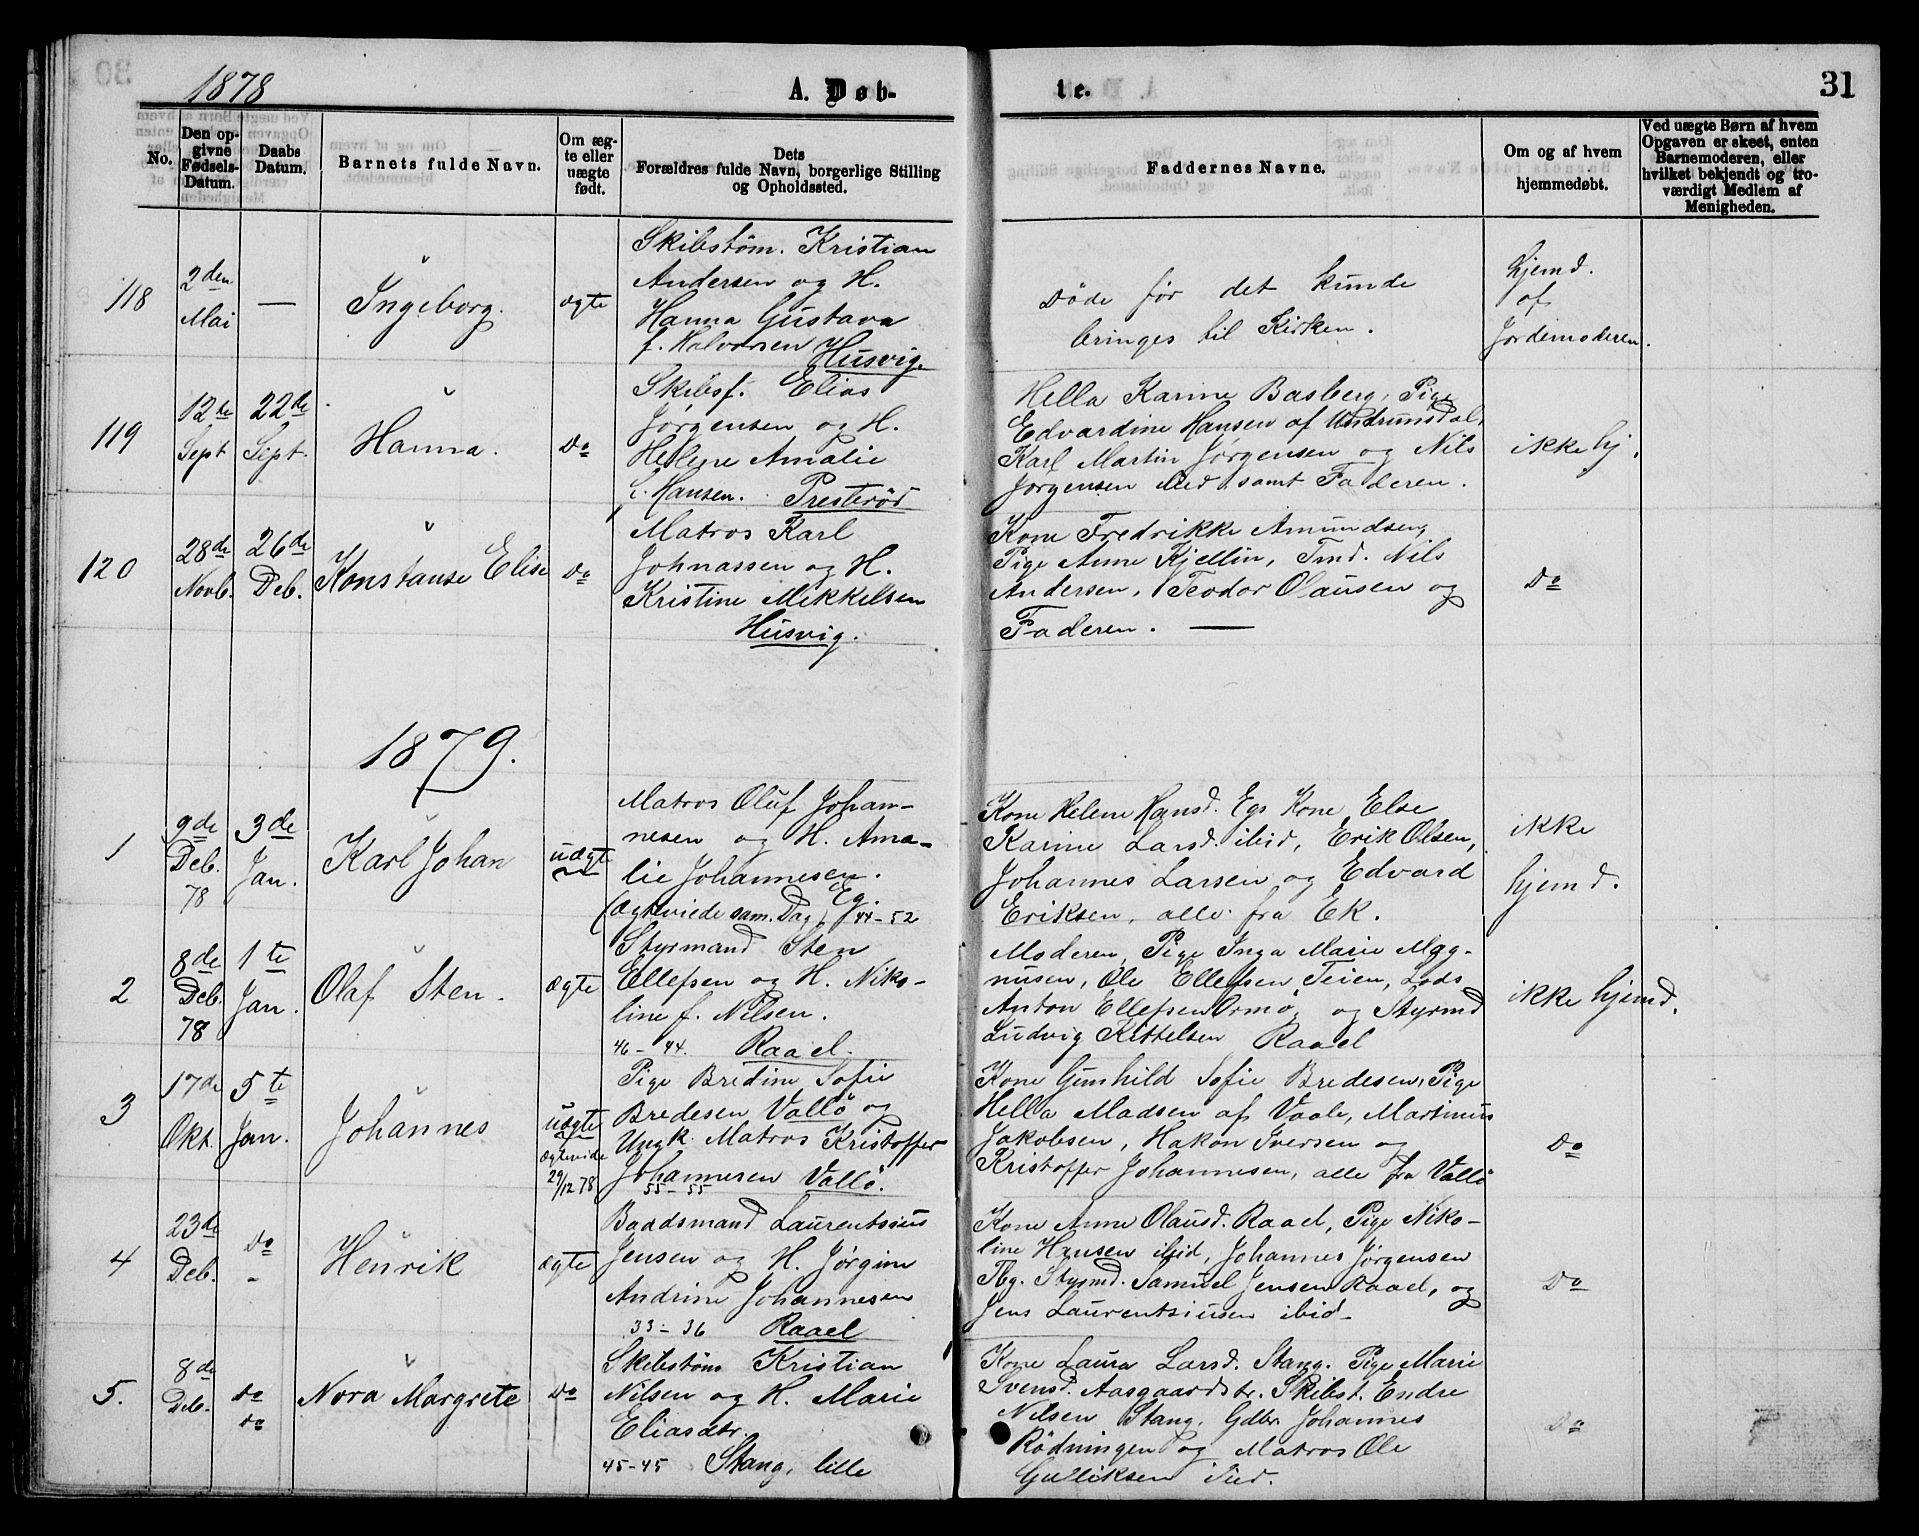 1878
A. Døb-
te.
31
No.
Den op-
givne
Fødsels-
Datum.
Daabs
Datum.
Barnets fulde Navn.
Om æg-
te eller
uægte
født.
Dets
Forældres fulde Navn, borgerlige Stilling
og Opholdssted.
Faddernes Navne.
Om og af hvem
hjemmedøbt.
Ved uægte Børn af hvem
Opgaven er skeet, enten
Barnemoderen, eller
hvilket bekjendt og tro-
værdigt Medlem af
Menigheden.
118
2den
Mai
—
Ingeborg.
ægte
Skibstøm. Kristian
Andersen og H.
Hanna Gustava
f. Halvorsen Husvig.
Døde før det kunde
bringes til Kirken.
hjemd.
af
Jordemoderen.
119
12te
Sept
22de
Sept.
Hanna.
Do
Skibsf. Elias
Jørgensen og H.
Helene Amalie
f. Hansen. Presterød
Hella Karine Basberg, Pige
Edvardine Hansen af Undrumsdal,
Karl Martin Jørgensen og Nils
Jørgensen ibid. samt Faderen.
ikke hj.
120
28de
Novb.
26de
Deb.
Konstanse Elise
Do
Matros Karl
Johnassen og H.
Kristine Mikkelsen
Husvig.
Kone Fredrikke Amundsen,
Pige Anne Kjellin, Tmd. Nils
Andersen, Teodor Olausen og
Faderen. —
Do
1879.
1
9de
Deb.
78
3de
Jan.
Karl Johan
uægte
Matros Oluf Johan-
nesen og H. Ama-
lie Johannesen.
Eg.
(ægteviede sam. Dag) 44-52
Kone Helene Hansd. Eg, Kone Else
Karine Larsd. ibid, Erik Olsen,
Johannes Larsen og Edvard
Eriksen, alle fra Ek.
ikke
hjemd.
2
8de
Deb.
78
1te
Jan.
Olaf Sten.
ægte
Styrmand Sten
Ellefsen og H. Niko-
line f. Nilsen.
46-44. Raael.
Moderen, Pige Inga Marie Mag-
nusen, Ole Ellefsen Teien, Lods
Anton Ellefsen Ormø, og Styrmd
Ludvig Kittelsen Raael
ikke hjemd.
3
17de
Okt.
5te
Jan.
Johannes
uægte
ægtevide
29/12 78
Pige Bredine Sofie
Bredesen Vallö og
Ungk. Matros Kristoffer
Johannesen Vallö.
55-55
Kone Gunhild Sofie Bredesen, Pige
Hella Madsen af Vaale, Martinius
Jakobsen, Hakon Iversen og
Kristoffer Johannesen, alle fra Vallö
Do
4
23de
Deb.
Do
-
Henrik
ægte
Baadsmand Laurentsius
Jensen og H. Jørgine
Andrine Johannesen
33-36 Raael
Kone Anne Olausd. Raael, Pige Niko-
line Hansen ibid, Johannes Jørgensen
Tbg. Styrmd. Samuel Jensen Raael, og
Jens Laurentsiusen ibid-
Do
5.
8de
Deb.
Do
Do
Nora Margrete
Do
Skibstøm Kristian
Nilsen og H. Marie
Eliasdtr.
45-45 Stang, lille
Kone Laura Larsd. Stang. Pige Marie
Svensd. Aasgaardstr. Skibst. Endre
Nilsen Stang, Gdbr. Johannes
Rødningen og Matros Ole
Gulliksen ibid.
Do